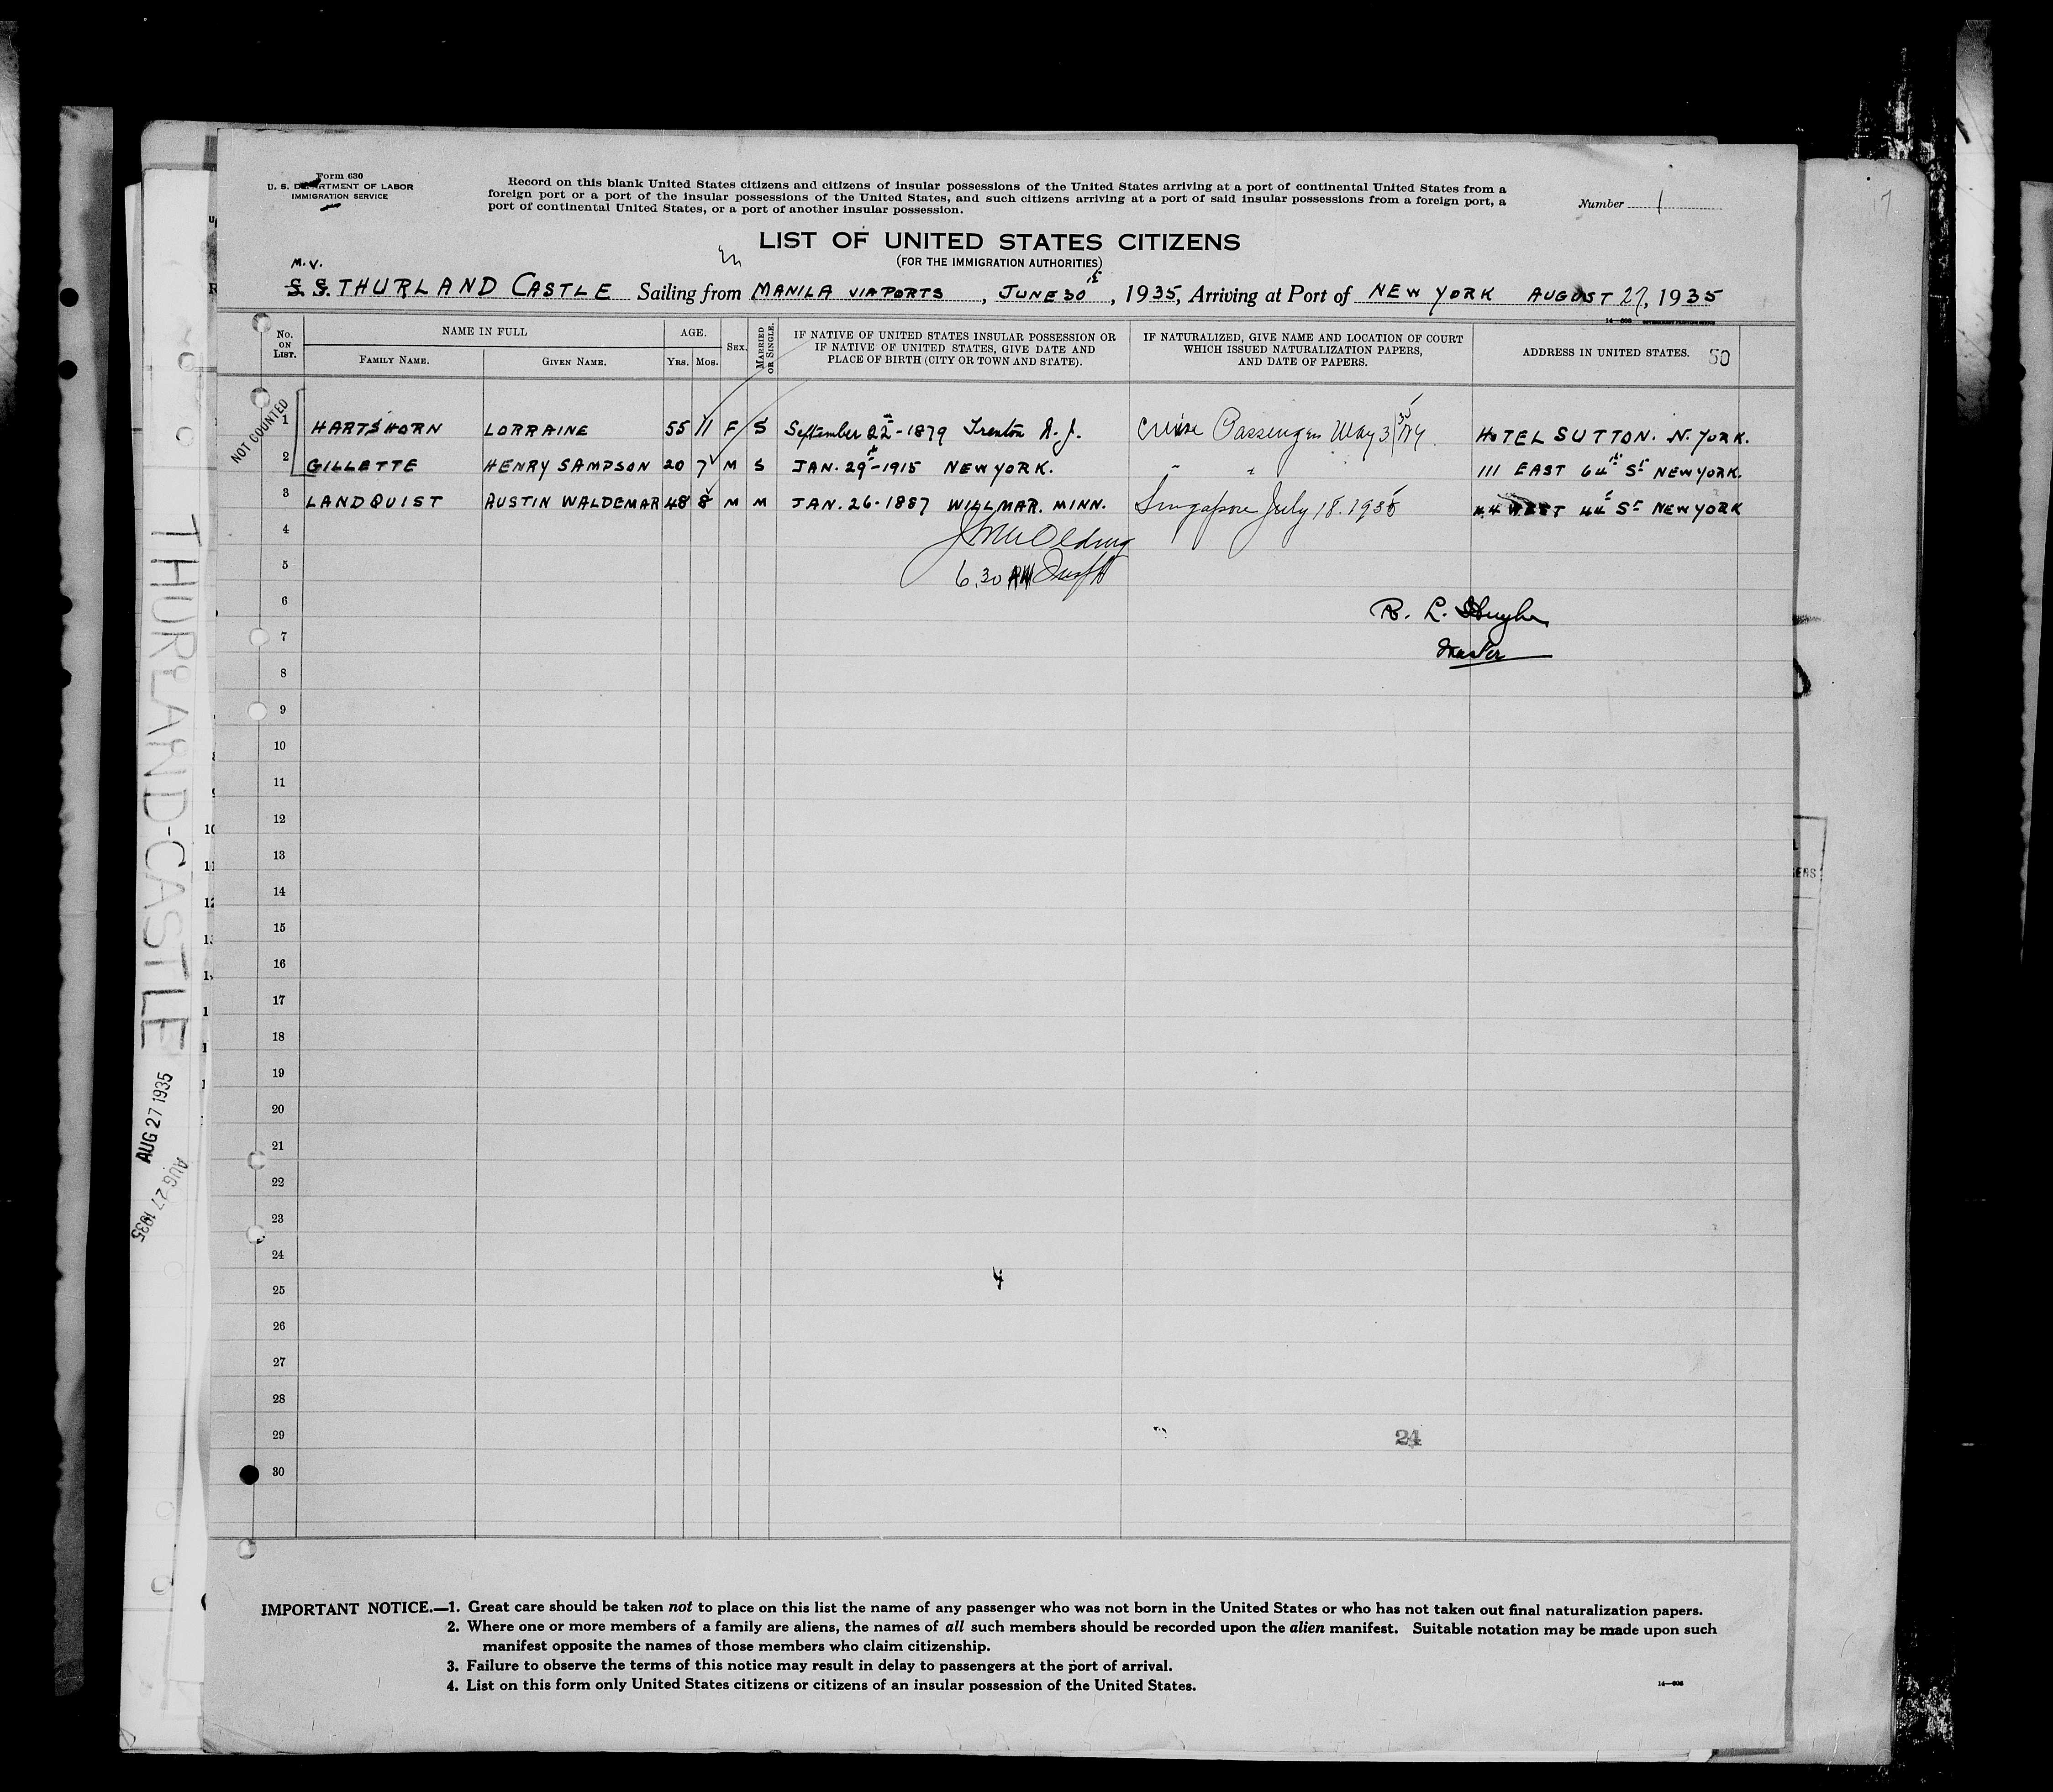 Form 630
U. S. DEPARTMENT OF LABOR
IMMIGRATION SERVICE
Record on this blank United States citizens and citizens of insular possessions of the United States arriving at a port of continental United States from a
foreign port or a port of the insular possessions of the United States, and such citizens arriving at a port of said insular possessions from a foreign port, a
port of continental United States, or a port of another insular possession.
Number 1
17
LIST OF UNITED STATES CITIZENS
(FOR THE IMMIGRATION AUTHORITIES)
M.V.
S.S. THURLAND CASTLE Sailing from MANILA VIA PORTS, JUNE 30, 1935, Arriving at Port of NEW YORK AUGUST 27, 1935
No. ON LIST.
NAME IN FULL
FAMILY NAME.
GIVEN NAME.
AGE.
Yrs. Mos.
SEX.
MARRIED OR SINGLE.
IF NATIVE OF UNITED STATES INSULAR POSSESSION OR
IF NATIVE OF UNITED STATES, GIVE DATE AND
PLACE OF BIRTH (CITY OR TOWN AND STATE).
IF NATURALIZED, GIVE NAME AND LOCATION OF COURT
WHICH ISSUED NATURALIZATION PAPERS,
AND DATE OF PAPERS.
ADDRESS IN UNITED STATES. 50
NOT COUNTED
1 HARTSHORN LORRAINE 55 11 F S September 22-1879 Trenton N.J. Cruise Passenger May 3 HOTEL SUTTON. N. YORK.
2 GILLETTE HENRY SAMPSON 20 7 M S JAN. 29th-1915 NEW YORK. " " 111 EAST 64th St NEW YORK.
3 LANDQUIST AUSTIN WALDEMAR 48 8 M M JAN. 26-1887 WILLMAR. MINN. Singapore July 18. 1935 WEST 44 St NEW YORK
4
5 6.30 AM
6 R. L. Hughes
7 Master
8
9
10
11
12
13
14
15
16
17
18
19
20
21
22
23
24
25
26
27
28
29 24
30
THURLAND-CASTLE
AUG 27 1935
AUG 27 1935
IMPORTANT NOTICE.—1. Great care should be taken not to place on this list the name of any passenger who was not born in the United States or who has not taken out final naturalization papers.
2. Where one or more members of a family are aliens, the names of all such members should be recorded upon the alien manifest. Suitable notation may be made upon such
manifest opposite the names of those members who claim citizenship.
3. Failure to observe the terms of this notice may result in delay to passengers at the port of arrival.
4. List on this form only United States citizens or citizens of an insular possession of the United States.